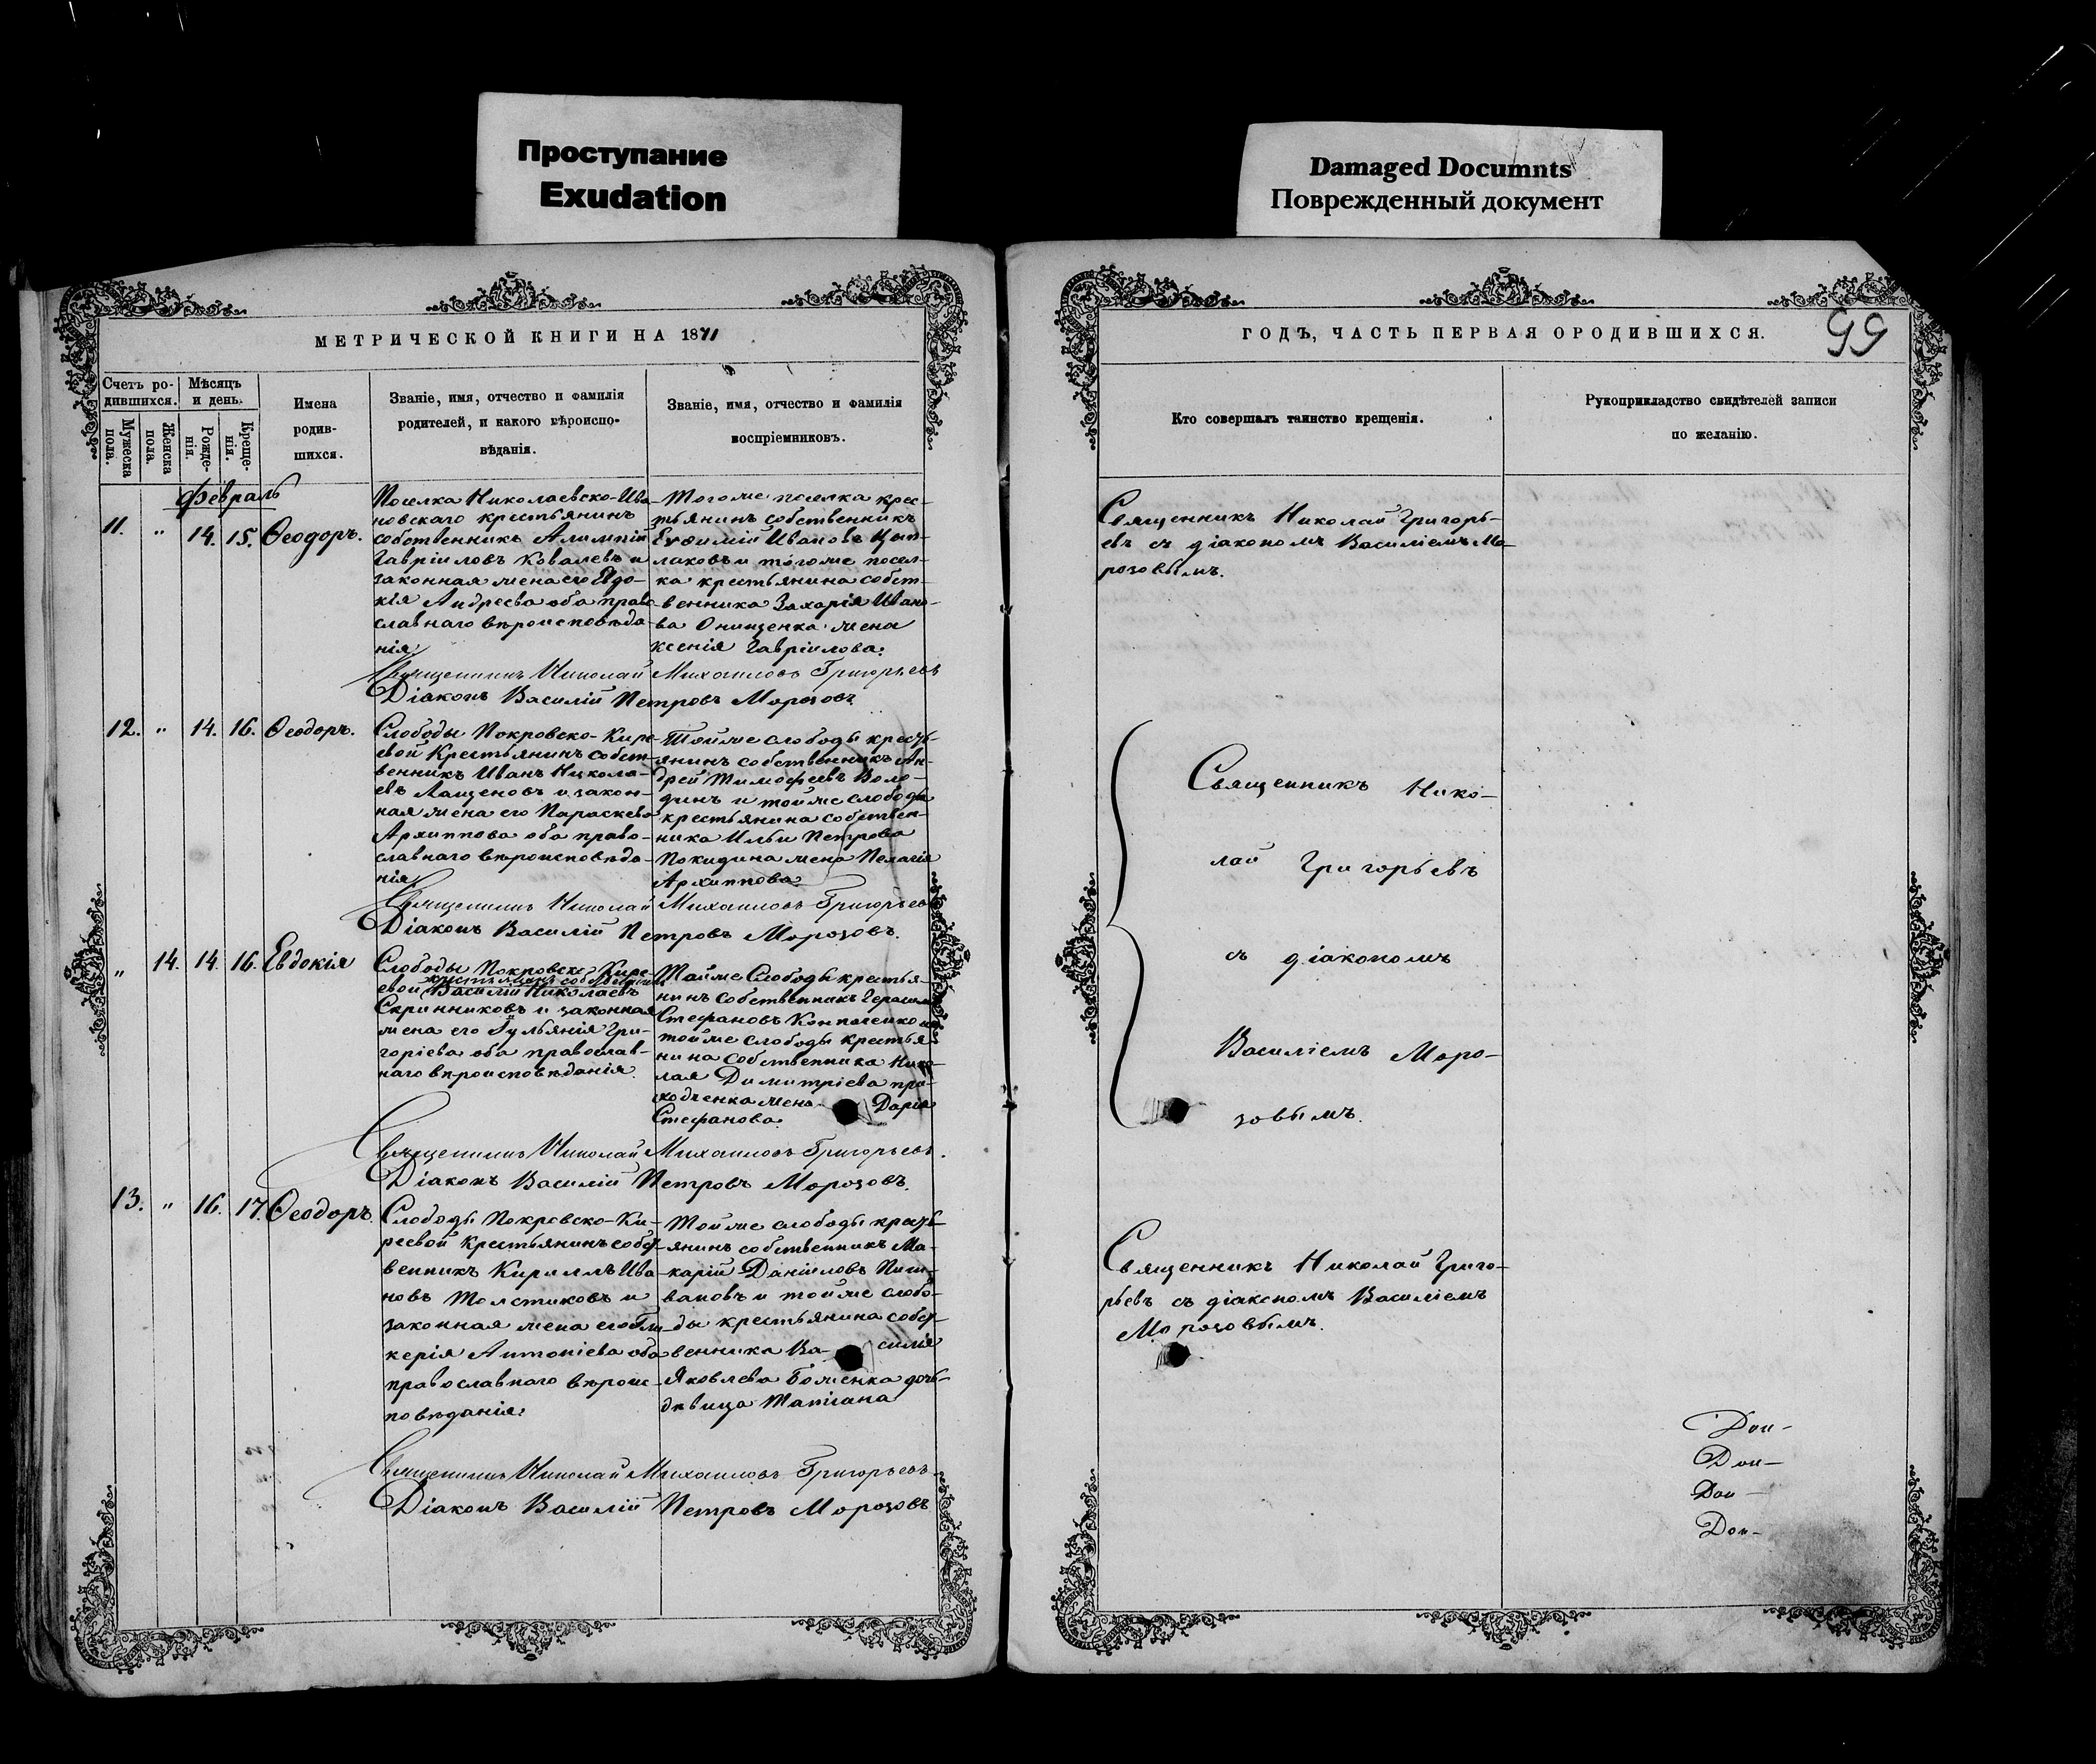 Проступание
Exudation
Damaged Documnts
Поврежденный документ
МЕТРИЧЕСКОЙ КНИГИ НА 1871
Счетъ ро-
дившихся.
Мужеска
пола.
Женска
пола.
Мѣсяцъ
и день.
Рожде-
нія.
Креще-
нія.
Имена
родив-
шихся.
Званіе, имя, отчество и фамилія
родителей, и какого вѣроиспо-
вѣданія.
Званіе, имя, отчество и фамилія
воспріемниковъ.
Февраль
11. " 14. 15. Ѳеодоръ.
Поселка Николаевско-Ива-
новскаго крестьянинъ
собственникъ Алимпій
Гавріиловъ Ковалевъ и
законная жена его Евдо-
кія Андреева оба право
славнаго вѣроисповѣда
нія.
Тогоже поселка крес-
тьянинъ собственникъ
Евѳимій Ивановъ
и тогоже посел-
ка крестьянина собст-
венника Захарія Ивано-
ва Онищенка жена
Ксенія Гавріилова.
Священникъ Николай Михаиловъ Григорьевъ
Діаконъ Василій Петровъ Морозовъ
12. " 14. 16. Ѳеодоръ.
Слободы Покровско-Кире
евой Крестьянинъ собст-
венникъ Иванъ Никола-
евъ Лащеновъ и закон-
ная жена его Параскева
Архиппова оба право-
славнаго вѣроисповѣда-
нія
Тойже слободы кресть-
янинъ собственникъ Ан-
дрей Тимофеевъ Воло-
динъ и тойже слободы
крестьянина собствен-
ника Ильи Петрова
Покидина жена Пелагія
Архиппова.
Священникъ Николай Михаиловъ Григорьевъ
Діаконъ Василій Петровъ Морозовъ.
" 14. 14. 16. Евдокія
Слободы Покровско-Кире-
крестьянинъ собственникъ
евой Василій Николаевъ
Скринниковъ и законная
жена его Іульянія Гри-
горіева оба православ-
наго вѣроисповѣданія.
Тойже Слободы крестья
нинъ Собственникъ Герасимъ
Стефановъ и
тойже слободы крестья
нина Собственника Нико-
лая Димитріева При-
ходченка жена Дарія
Стефанова.
Священникъ Николай Михаиловъ Григорьевъ.
Діаконъ Василій Петровъ Морозовъ.
13. " 16. 17. Ѳеодоръ.
Слободы Покровско-Ки-
реевой Крестьянинъ собст-
венникъ Кириллъ Ива
новъ Толстиковъ и
законная жена его Гли-
керія Антоніева оба
православнаго вѣроис-
повѣданія.
Тойже слободы кресть-
янинъ собственникъ Ма-
карій Даніиловъ Пиш-
вановъ и тойже слобо-
ды крестьянина собст-
венника Ва- силія
Яковлева Боженка дочь-
дѣвица Татіана
Священникъ Николай Михаиловъ Григорьевъ
Діаконъ Василій Петровъ Морозовъ
ГОДЪ, ЧАСТЬ ПЕРВАЯ О РОДИВШИХСЯ.
99
Кто совершалъ таинство крещенія.
Рукоприкладство свидѣтелей записи
по желанію.
Священникъ Николай Григорь-
евъ съ діакономъ Василіемъ Мо-
розовымъ.
Священникъ Нико-
лай Григорьевъ
съ діакономъ
Василіемъ Моро-
зовымъ.
Священникъ Николай Григо-
рьевъ съ діакономъ Василіемъ
Морозовымъ.